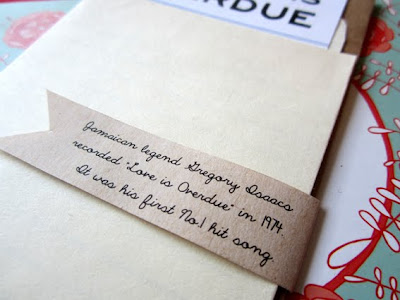 ERDUE
Jamaican legend Gregory Isaacs
recorded "Love is Overdue" in 1974.
It was his first No.1 hit song.